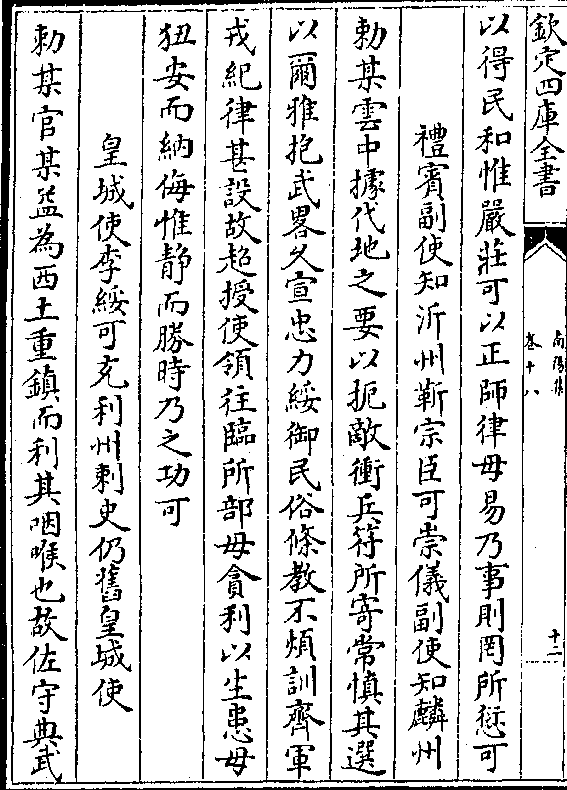 欽定四庫全書
南陽集
卷十八
十二
以得民和惟嚴莊可以正師律毋易乃事則罔所愆可
禮賓副使知沂州靳宗臣可崇儀副使知麟州
勅某雲中據代地之要以扼敵衝兵符所寄常慎其選
以爾雅抱武畧久宣忠力綏御民俗條教不煩訓齊軍
戎紀律甚設故超授使領往臨所部毋貪利以生患毋
狃安而納侮惟静而勝時乃之功可
皇城使李綬可充利州刺史仍舊皇城使
勅某官某益為西土重鎮而利其咽喉也故佐守典武